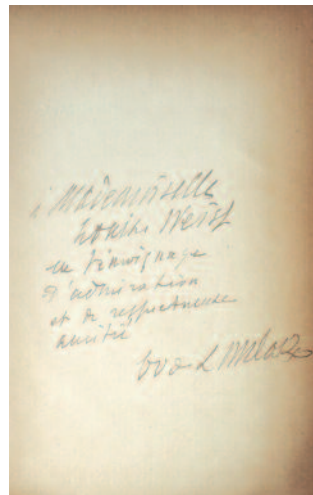 à Mademoiselle
Louise Weiss
en témoignage
d'admiration
et de respectueuse
amitié
O. V. de L. Milosz